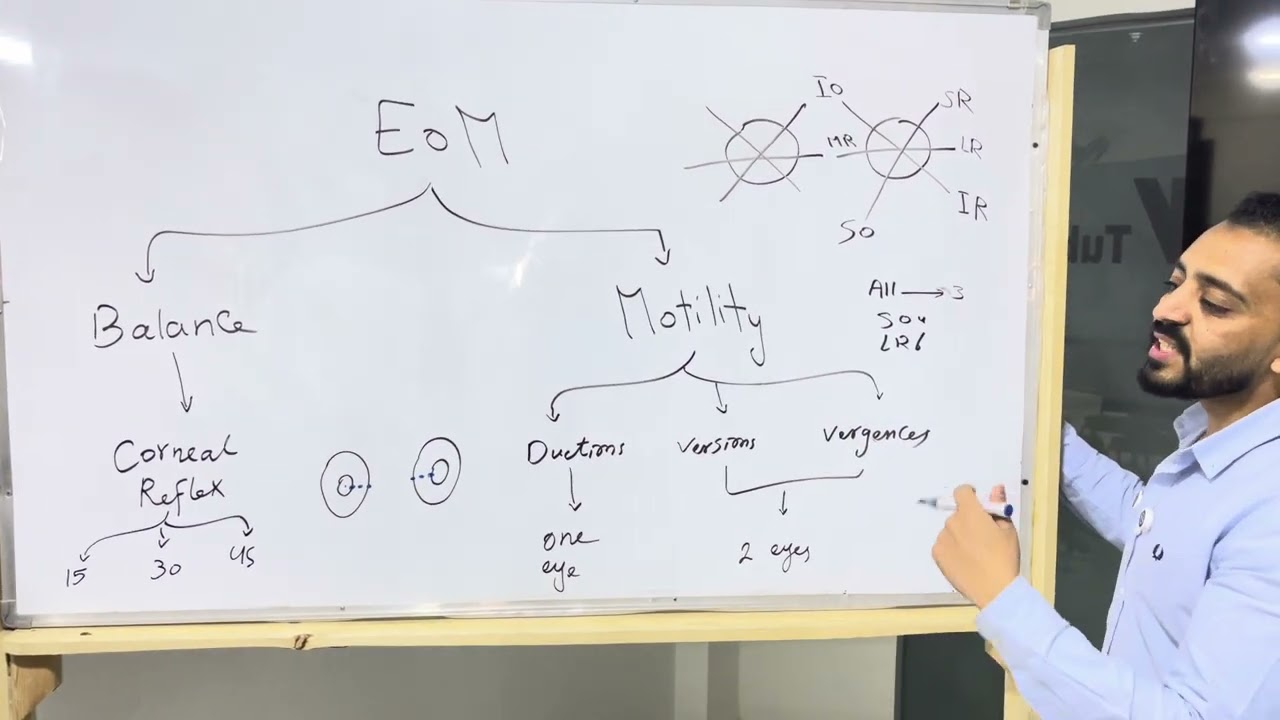 EOM
IO
SR
MR
LR
IR
SO
All → 3
SO4
LR6
Balance
Motility
Corneal
Reflex
15
30
45
Ductions
Versions
Vergences
one
eye
2 eyes